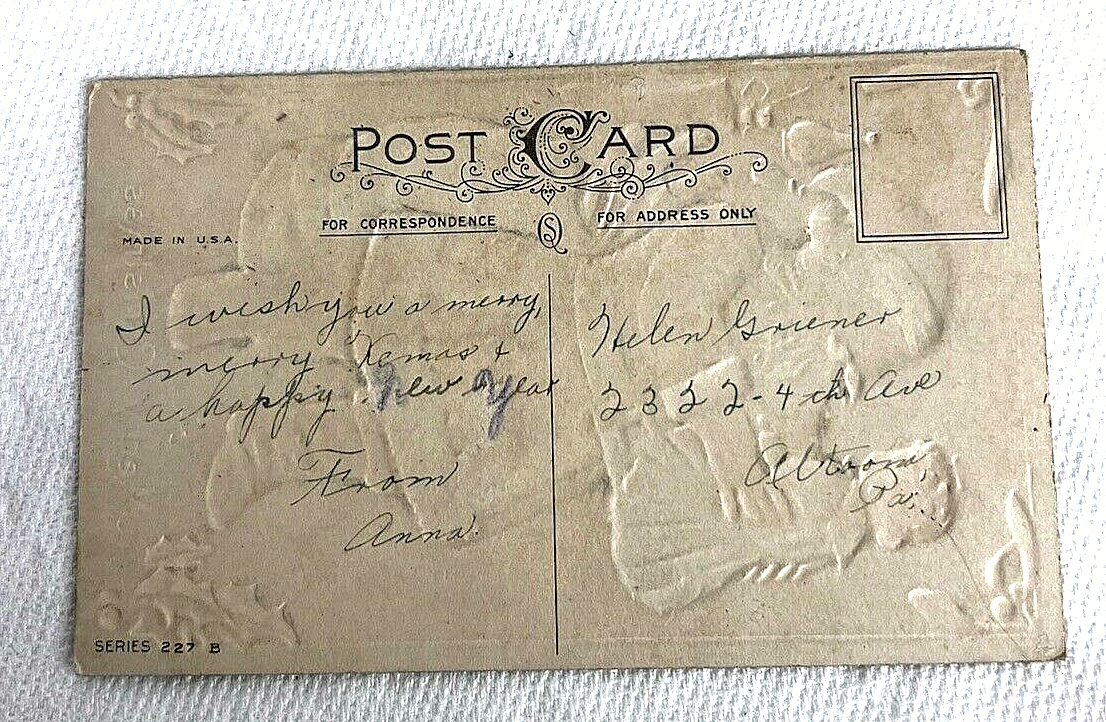 POST CARD
FOR CORRESPONDENCE
FOR ADDRESS ONLY
MADE IN U.S.A.
I wish you a merry,
merry Xmas &
a happy New Year
From
Anna.
Helen Griener
2322-4th Ave
Altoona,
Pa.
SERIES 227 B